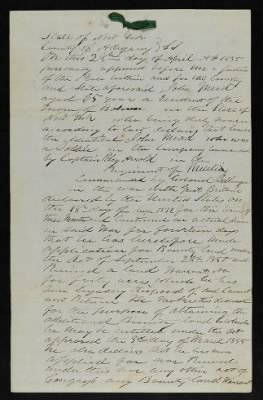 State of New York
County of Allegany } SS
On this 25th day of April AD 1855
personally appeared before me a Justice
of the Peace within and for the County
and State aforesaid John Mead
aged 65 years a resident of the
Town of in the State of
New York who being duly sworn
according to law, declares that he is
the identical John Mead who was
a Soldier in the Company commanded
by Captain in the
Regiment of Militia
Commanded by Colonel
in the war with Great Britain
declared by the United States on
the 18th day of June 1812 for the term of
and continued in actual service
in said War for fourteen days
that he has heretofore made
application for bounty land under
the Act of September 28th 1850 and
Received a Land Warrant No
for forty acres which he has
since legally disposed of and cannot
now Return He makes this declaration
for the purpose of obtaining the
additional Bounty Land to which
he may be entitled under the Act
approved the 3d day of March 1855
He also declares that he has never
applied for nor Received
under this nor any other act of
Congress any Bounty Land Warrant